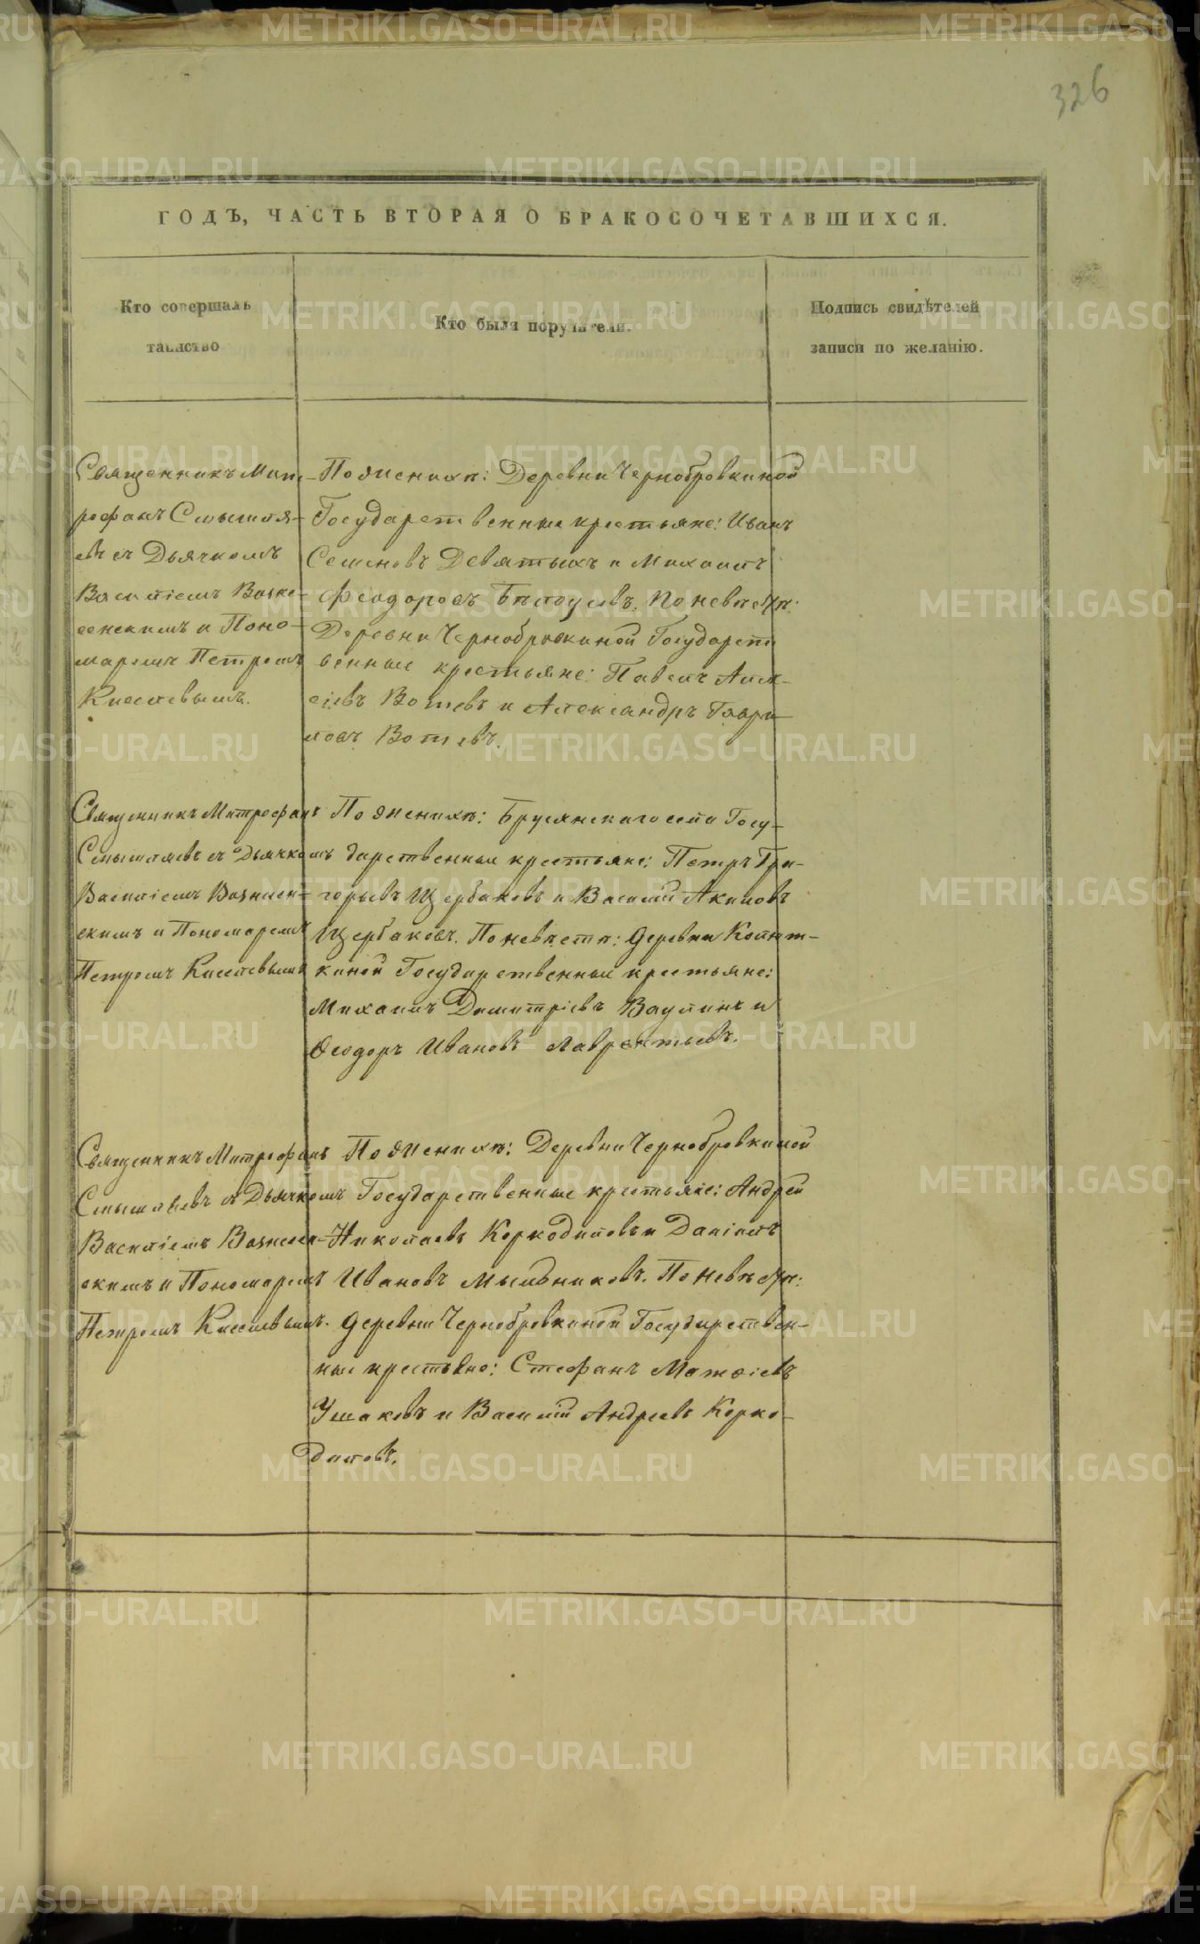 326
ГОДЪ, ЧАСТЬ ВТОРАЯ О БРАКОСОЧЕТАВШИХСЯ.
Кто совершалъ
таинство
Кто были поручители.
Подпись свидѣтелей
записи по желанію.
Священникъ Мит-
рофанъ Смышля-
евъ съ Дьячкомъ
Василіемъ Возне-
сенскимъ и Поно-
маремъ Петромъ
Киселевымъ.
По женихѣ: Деревни Чернобровкиной
Государственные крестьяне: Иванъ
Семеновъ Девятыхъ и Михаилъ
Феодоровъ Бѣлоусовъ. По невѣстѣ:
Деревни Чернобровкиной Государст
венные крестьяне: Павелъ Алек-
сіевъ Вотевъ и Александръ Гаври
ловъ Вотевъ.
Священникъ Митрофанъ
Смышляевъ съ Дьячкомъ
Василіемъ Вознесен-
скимъ и Пономаремъ
Петромъ Киселевымъ
По женихѣ: Бруснянскаго села Госу-
дарственные крестьяне: Петръ Гри-
горьевъ Щербаковъ и Василій Акимовъ
Щербаковъ. По невѣстѣ: деревни
киной Государственные крестьяне:
Михаилъ Димитріевъ Ваулинъ и
Феодоръ Ивановъ Лаврентьевъ.
Священникъ Митрофанъ
Смышляевъ съ Дьячкомъ
Василіемъ Вознесен-
скимъ и Пономаремъ
Петромъ Киселевымъ.
По женихѣ: Деревни Чернобровкиной
Государственные крестьяне: Андрей
Николаевъ Коркодиновъ и Даніилъ
Ивановъ Мыльниковъ. По невѣстѣ:
деревни Чернобровкиной Государствен-
ные крестьяне: Стефанъ Матвіевъ
Ушаковъ и Василій Андреевъ Корко-
диновъ.
METRIKI.GASO-URAL.RU